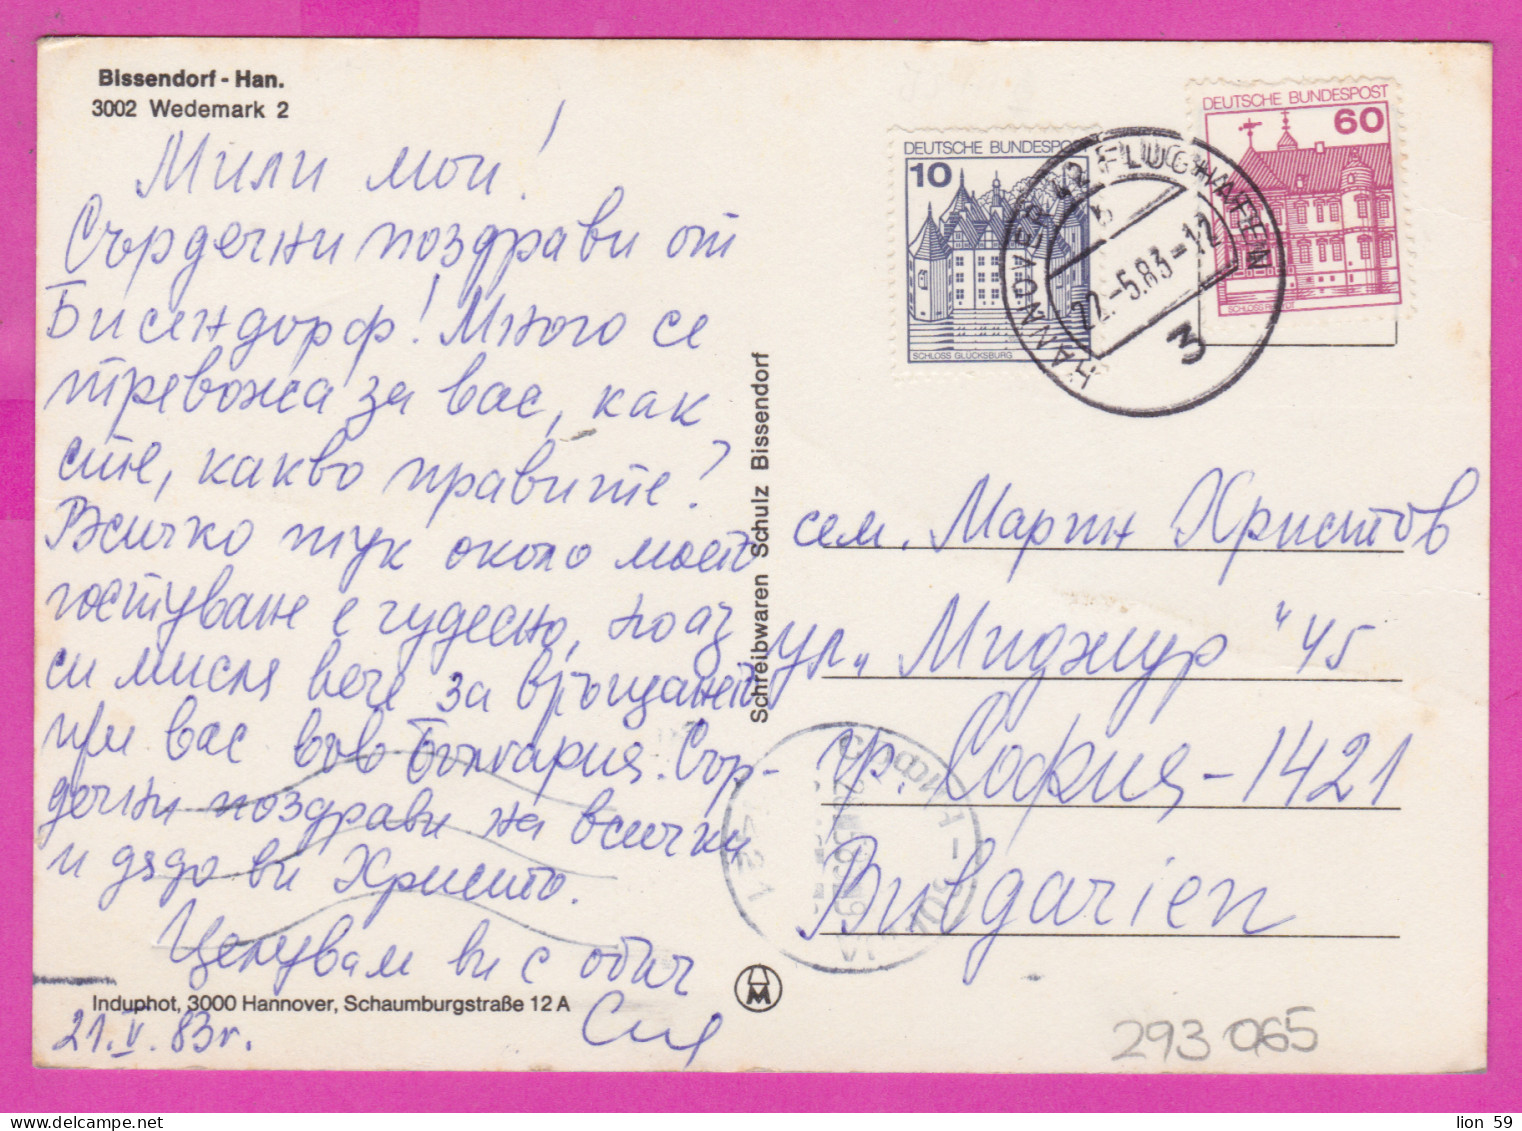 Bissendorf - Han.
3002 Wedemark 2
Мили мои!
Сърдечни поздрави от
Бисендорф! Много се
тревожа за вас, как
сте, какво правите?
Всичко тук около моето
гостуване е чудесно, но аз
си мисля вече за връщането
при вас във България. Сър-
дечни поздрави на всички
и дядо ви Христо.
Целувам ви с обич
21.V.83г.
Induphot, 3000 Hannover, Schaumburgstraße 12 A
Schreibwaren Schulz Bissendorf
DEUTSCHE BUNDESPOST
10
SCHLOSS GLÜCKSBURG
DEUTSCHE BUNDESPOST
60
HANNOVER 42 FLUGHAFEN
22.-5.83-12
3
сем. Марин Христов
ул. „Миджур" 45
гр. София-1421
Bulgarien
1421
293 065
lion 59